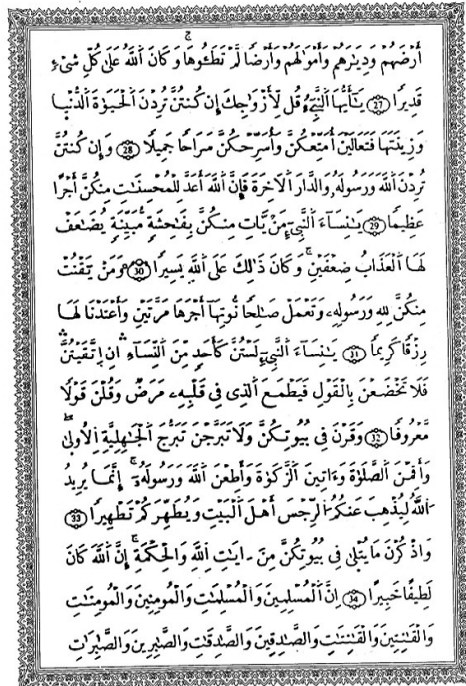 أَرْضَهُمْ وَدِيَٰرَهُمْ وَأَمْوَٰلَهُمْ وَأَرْضًا لَّمْ تَطَـُٔوهَا وَكَانَ اَ۬للَّهُ عَلَىٰ كُلِّ شَےْءٖ
قَدِيرًا 27 يَٰٓأَيُّهَا اَ۬لنَّبِےٓءُ قُل لِّأَزْوَٰجِكَ إِن كُنتُنَّ تُرِدْنَ اَ۬لْحَيَوٰةَ اَ۬لدُّنْيَا
وَزِينَتَهَا فَتَعَالَيْنَ أُمَتِّعْكُنَّ وَأُسَرِّحْكُنَّ سَرَاحًا جَمِيلًا 28 وَإِن كُنتُنَّ
تُرِدْنَ اَ۬للَّهَ وَرَسُولَهُۥ وَالدَّارَ اَ۬لْأخِرَةَ فَإِنَّ اَ۬للَّهَ أَعَدَّ لِلْمُحْسِنَٰتِ مِنكُنَّ أَجْرًا
عَظِيمًا 29 يَٰنِسَآءَ اَ۬لنَّبِےٓءِ مَنْ يَّاتِ مِنكُنَّ بِفَٰحِشَةٖ مُّبَيِّنَةٖ يُضَٰعَفْ
لَهَا اَ۬لْعَذَابُ ضِعْفَيْنِ وَكَانَ ذَٰلِكَ عَلَى اَ۬للَّهِ يَسِيرًا 30 وَمَنْ يَّقْنُتْ
مِنكُنَّ لِلهِ وَرَسُولِهِۦ وَتَعْمَلْ صَٰلِحًا نُّوتِهَآ أَجْرَهَا مَرَّتَيْنِ وَأَعْتَدْنَا لَهَا
رِزْقًا كَرِيمًا 31 يَٰنِسَآءَ اَ۬لنَّبِےٓءِ لَسْتُنَّ كَأَحَدٖ مِّنَ اَ۬لنِّسَآءِ انِ اِ۪تَّقَيْتُنَّ
فَلَا تَخْضَعْنَ بِالْقَوْلِ فَيَطْمَعَ اَ۬لذِے فِے قَلْبِهِۦ مَرَضٌ وَقُلْنَ قَوْلًا
مَّعْرُوفًا 32 وَقَرْنَ فِے بُيُوتِكُنَّ وَلَا تَبَرَّجْنَ تَبَرُّجَ اَ۬لْجَٰهِلِيَّةِ اِ۬لُاولَىٰ
وَأَقِمْنَ اَ۬لصَّلَوٰةَ وَءَاتِينَ اَ۬لزَّكَوٰةَ وَأَطِعْنَ اَ۬للَّهَ وَرَسُولَهُۥٓ إِنَّمَا يُرِيدُ
اُ۬للَّهُ لِيُذْهِبَ عَنكُمُ اُ۬لرِّجْسَ أَهْلَ اَ۬لْبَيْتِ وَيُطَهِّرَكُمْ تَطْهِيرًا 33
وَاذْكُرْنَ مَا يُتْلَىٰ فِے بُيُوتِكُنَّ مِنَ اٰيَٰتِ اِ۬للَّهِ وَالْحِكْمَةِ إِنَّ اَ۬للَّهَ كَانَ
لَطِيفًا خَبِيرًا 34 اِنَّ اَ۬لْمُسْلِمِينَ وَالْمُسْلِمَٰتِ وَالْمُومِنِينَ وَالْمُومِنَٰتِ
وَالْقَٰنِتِينَ وَالْقَٰنِتَٰتِ وَالصَّٰدِقِينَ وَالصَّٰدِقَٰتِ وَالصَّٰبِرِينَ وَالصَّٰبِرَٰتِ